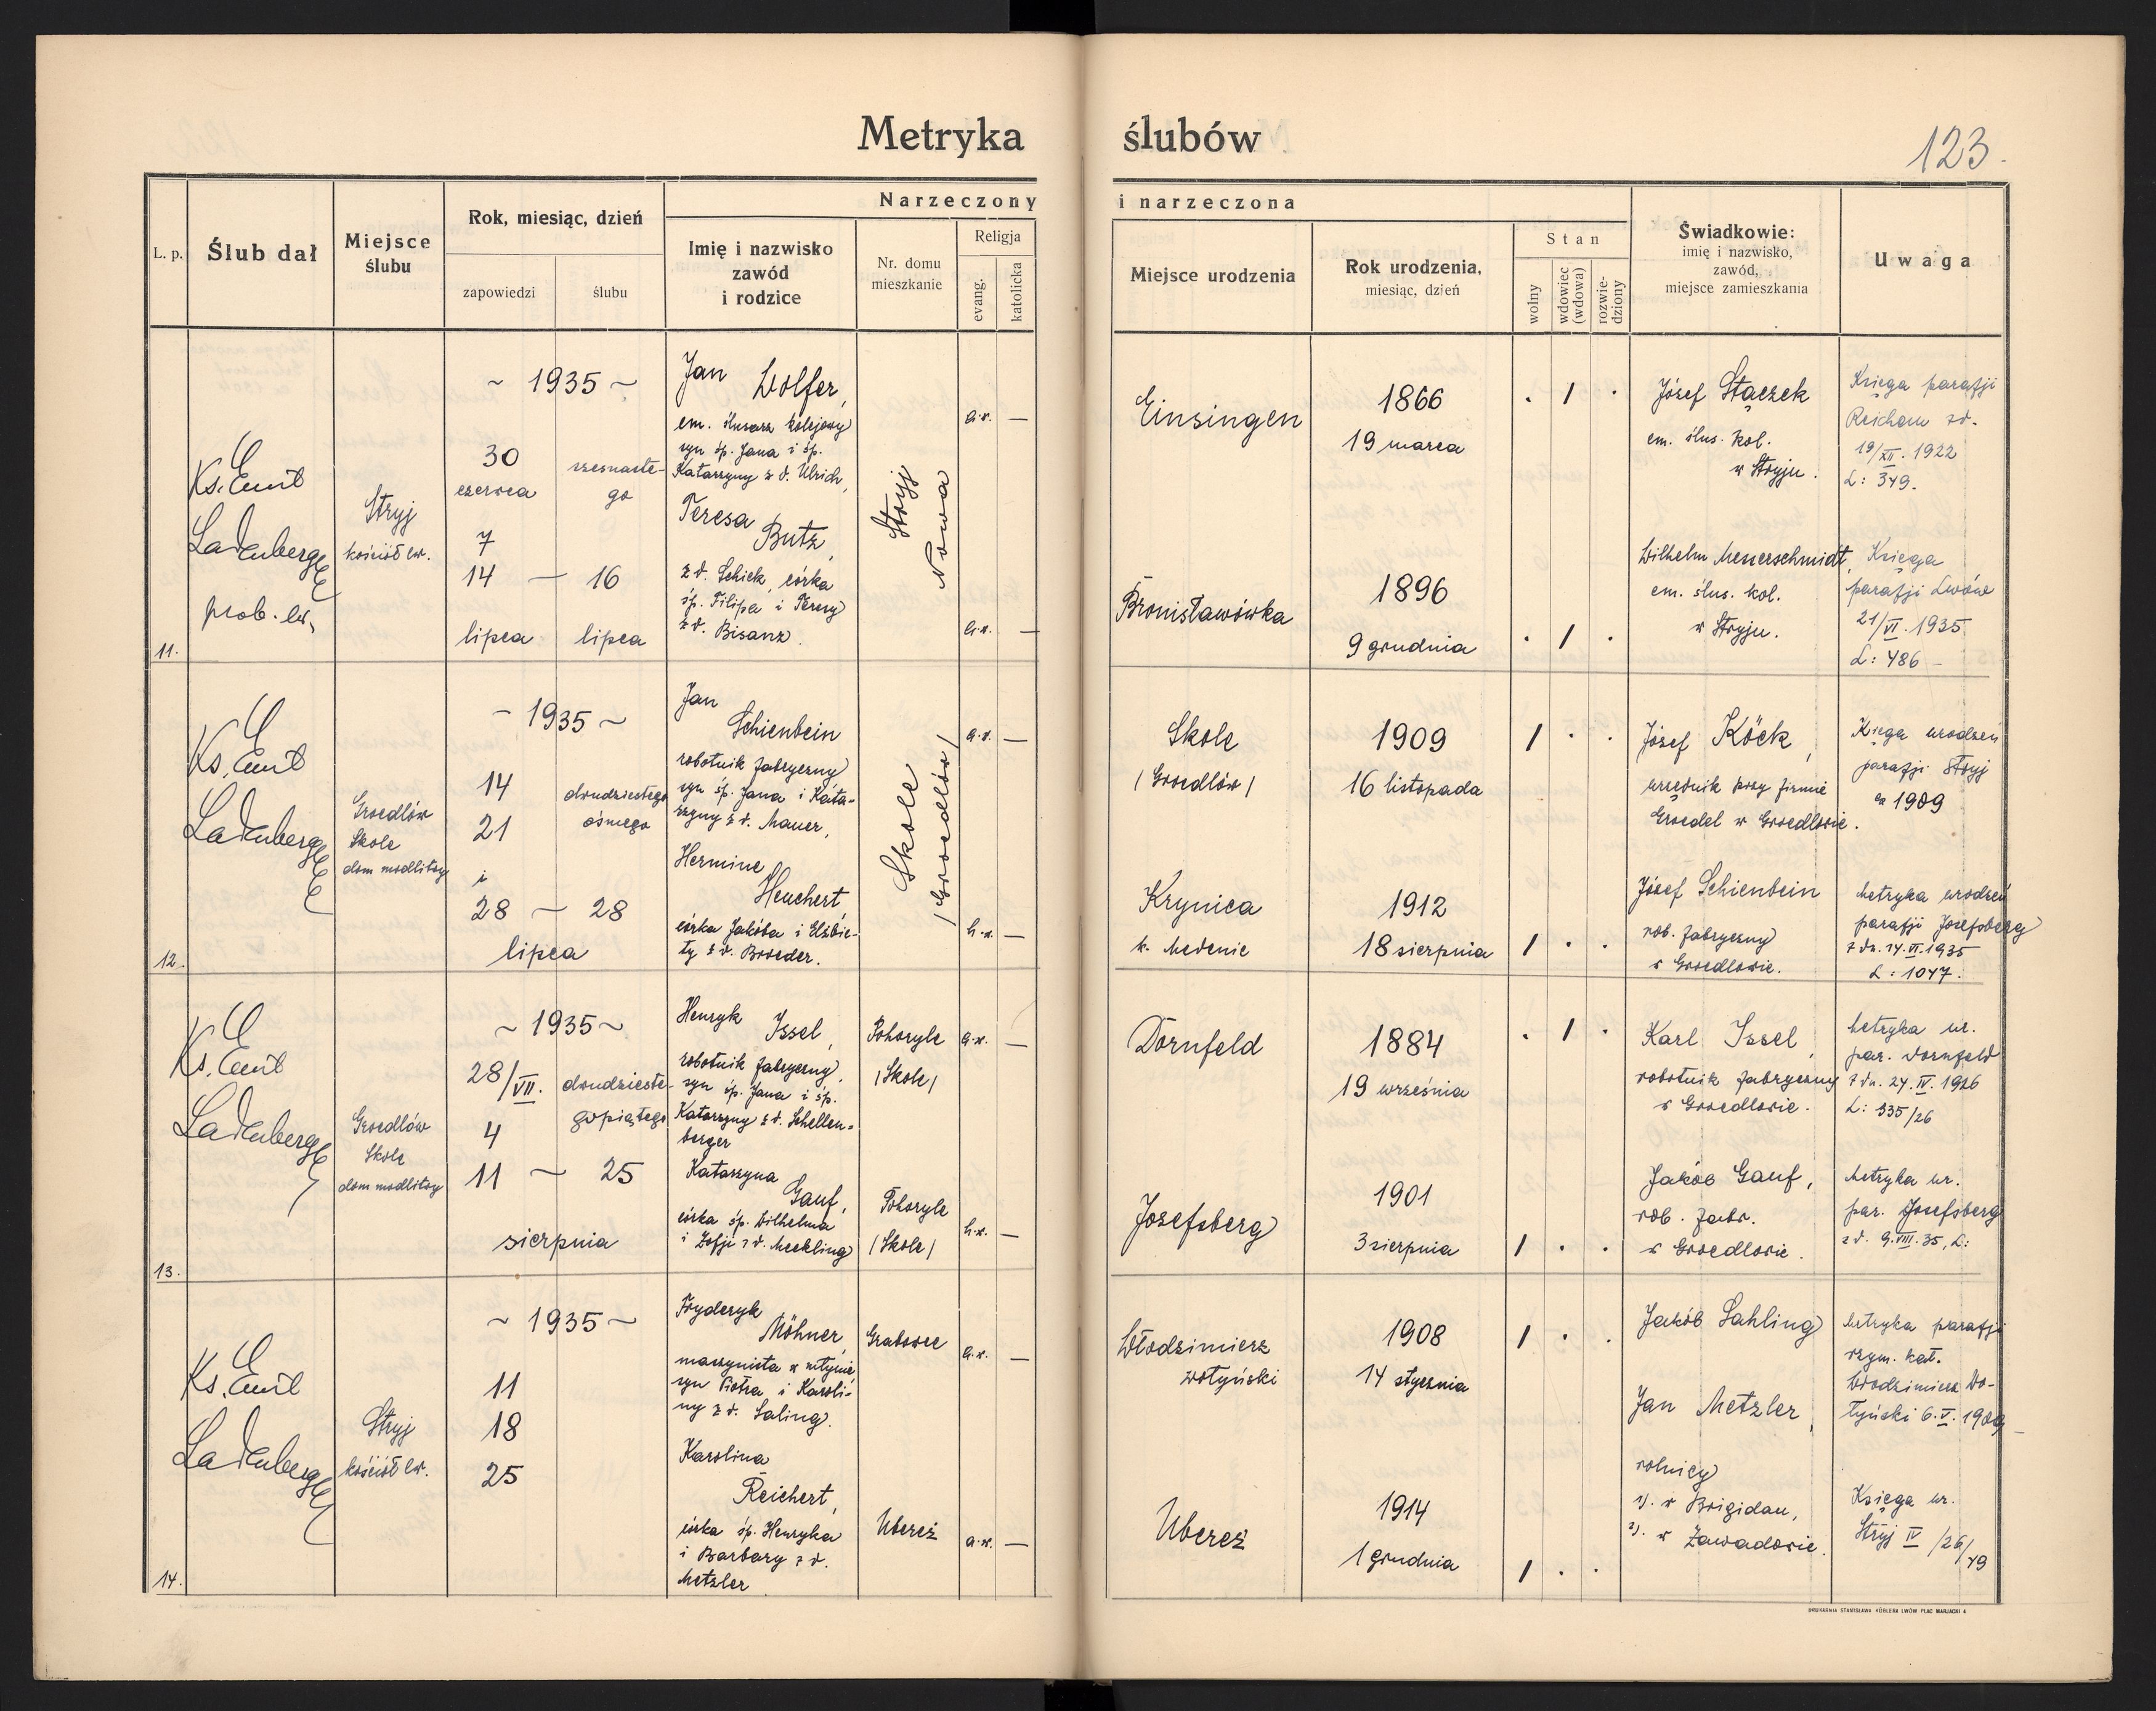 Metryka ślubów
123.
L. p.
Ślub dał
Miejsce
ślubu
Rok, miesiąc, dzień
zapowiedzi
ślubu
Narzeczony
Imię i nazwisko
zawód
i rodzice
Nr. domu
mieszkanie
Religja
evang.
katolicka
i narzeczona
Miejsce urodzenia
Rok urodzenia,
miesiąc, dzień
Stan
wolny
wdowiec
(wdowa)
rozwie-
dziony
Świadkowie:
imię i nazwisko,
zawód,
miejsce zamieszkania
Uwaga
11.
Ks. Emil
Ladenberger
prob. ew.
Stryj
kościół ew.
~ 1935 ~
30
czerwca
7
14 — 16
lipca lipca
szesnaste-
go
Jan
Wolfer,
em. ślusarz kolejowy
syn śp. Jana i śp.
Katarzyny z d. Ulrich,
Teresa
Butz,
z d. Schick, córka
śp. Filipa i Teresy
z d. Bisanz.
Stryj
Nowa
a.w. —
a.w. —
Einsingen
1866
19 marca
. / .
Józef Stączek
em. ślus. kol.
w Stryju.
Księga parafji
Reichau zd.
19/XII. 1922
L: 349.
Bronisławówka
1896
9 grudnia
. / .
Wilhelm Messerschmidt,
em. ślus. kol.
w Stryju.
Księga
parafji Lwów
21/VI. 1935
L: 486 —
12.
Ks. Emil
Ladenberger
Groedlów
Skole
dom modlitwy
~ 1935 ~
14
21
i
28 — 28
lipca
dwudziestego
ósmego
Jan
Schienbein
robotnik fabryczny
syn śp. Jana i Kata-
rzyny z d. Mauer,
Hermine
Heuchert
córka Jakóba i Elżbie-
ty z d. Broeder.
Skole
/Groedlów/
a.w. —
a.w. —
Skole
/Groedlów/
1909
16 listopada
/ . .
Józef Köck,
urzędnik przy firmie
Groedel w Groedlowie.
Księga urodzeń
parafji Stryj
1909
Krynica
k. Medenic
1912
18 sierpnia
/ . .
Józef Schienbein
rob. fabryczny
w Groedlowie.
Metryka urodzeń
parafji Josefsberg
z dn. 14.VI.1935
L: 1047.
13.
Ks. Emil
Ladenberger
Groedlów
Skole
dom modlitwy
~ 1935 ~
28/VII.
4
11 — 25
sierpnia
dwudzieste-
go piątego
Henryk
Issel,
robotnik fabryczny,
syn śp. Jana i śp.
Katarzyny z d. Schellen-
berger
Katarzyna
Gauf,
córka śp. Wilhelma
i Zofji z d. Meckling
Pohoryle
/Skole/
Pohoryle
/Skole/
a.w. —
a.w. —
Dornfeld
1884
19 września
. / .
Karl Issel,
robotnik fabryczny
w Groedlowie.
Metryka ur.
par. Dornfeld
z dn. 24.IV. 1926
L: 335/26
Josefsberg
1901
3 sierpnia
/ . .
Jakób Gauf,
rob. fabr.
w Groedlowie.
Metryka ur.
par. Josefsberg
z d. 9.VIII.35, L:
14.
Ks. Emil
Ladenberger
Stryj
kościół ew.
~ 1935 ~
11
18
25
Fryderyk
Möhner,
maszynista w młynie,
syn Piotra i Karoli-
ny z d. Saling.
Karolina
Reichert,
córka śp. Henryka
i Barbary z d.
Metzler.
Grabowce
Ubereż
a.w. —
a.w. —
Włodzimierz
wołyński
1908
14 stycznia
/ . .
Jakób Sahling
Jan Metzler,
rolnicy
1). w Brigidau,
2). w Zawadowie.
Metryka parafji
rzym. kat.
Włodzimierz Wo-
łyński 6.V. 1909
Ubereż
1914
1 grudnia
/ . .
Księga ur.
Stryj IV /26/49
DRUKARNIA STANISŁAWA KÜBLERA LWÓW PLAC MARJACKI 4